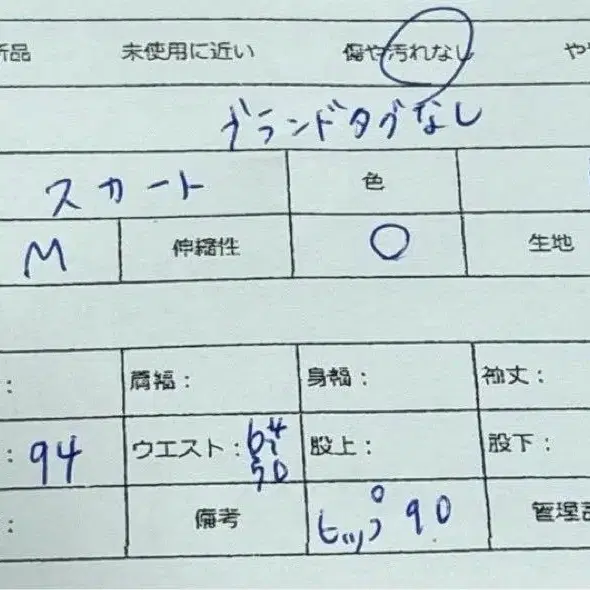 新品 未使用に近い 傷や汚れなし やや
ブランドタグなし
スカート 色
M 伸縮性 ○ 生地
: 肩幅: 身幅: 袖丈:
: 94 ウエスト: 股上: 股下:
: 備考 ヒップ 90 管理